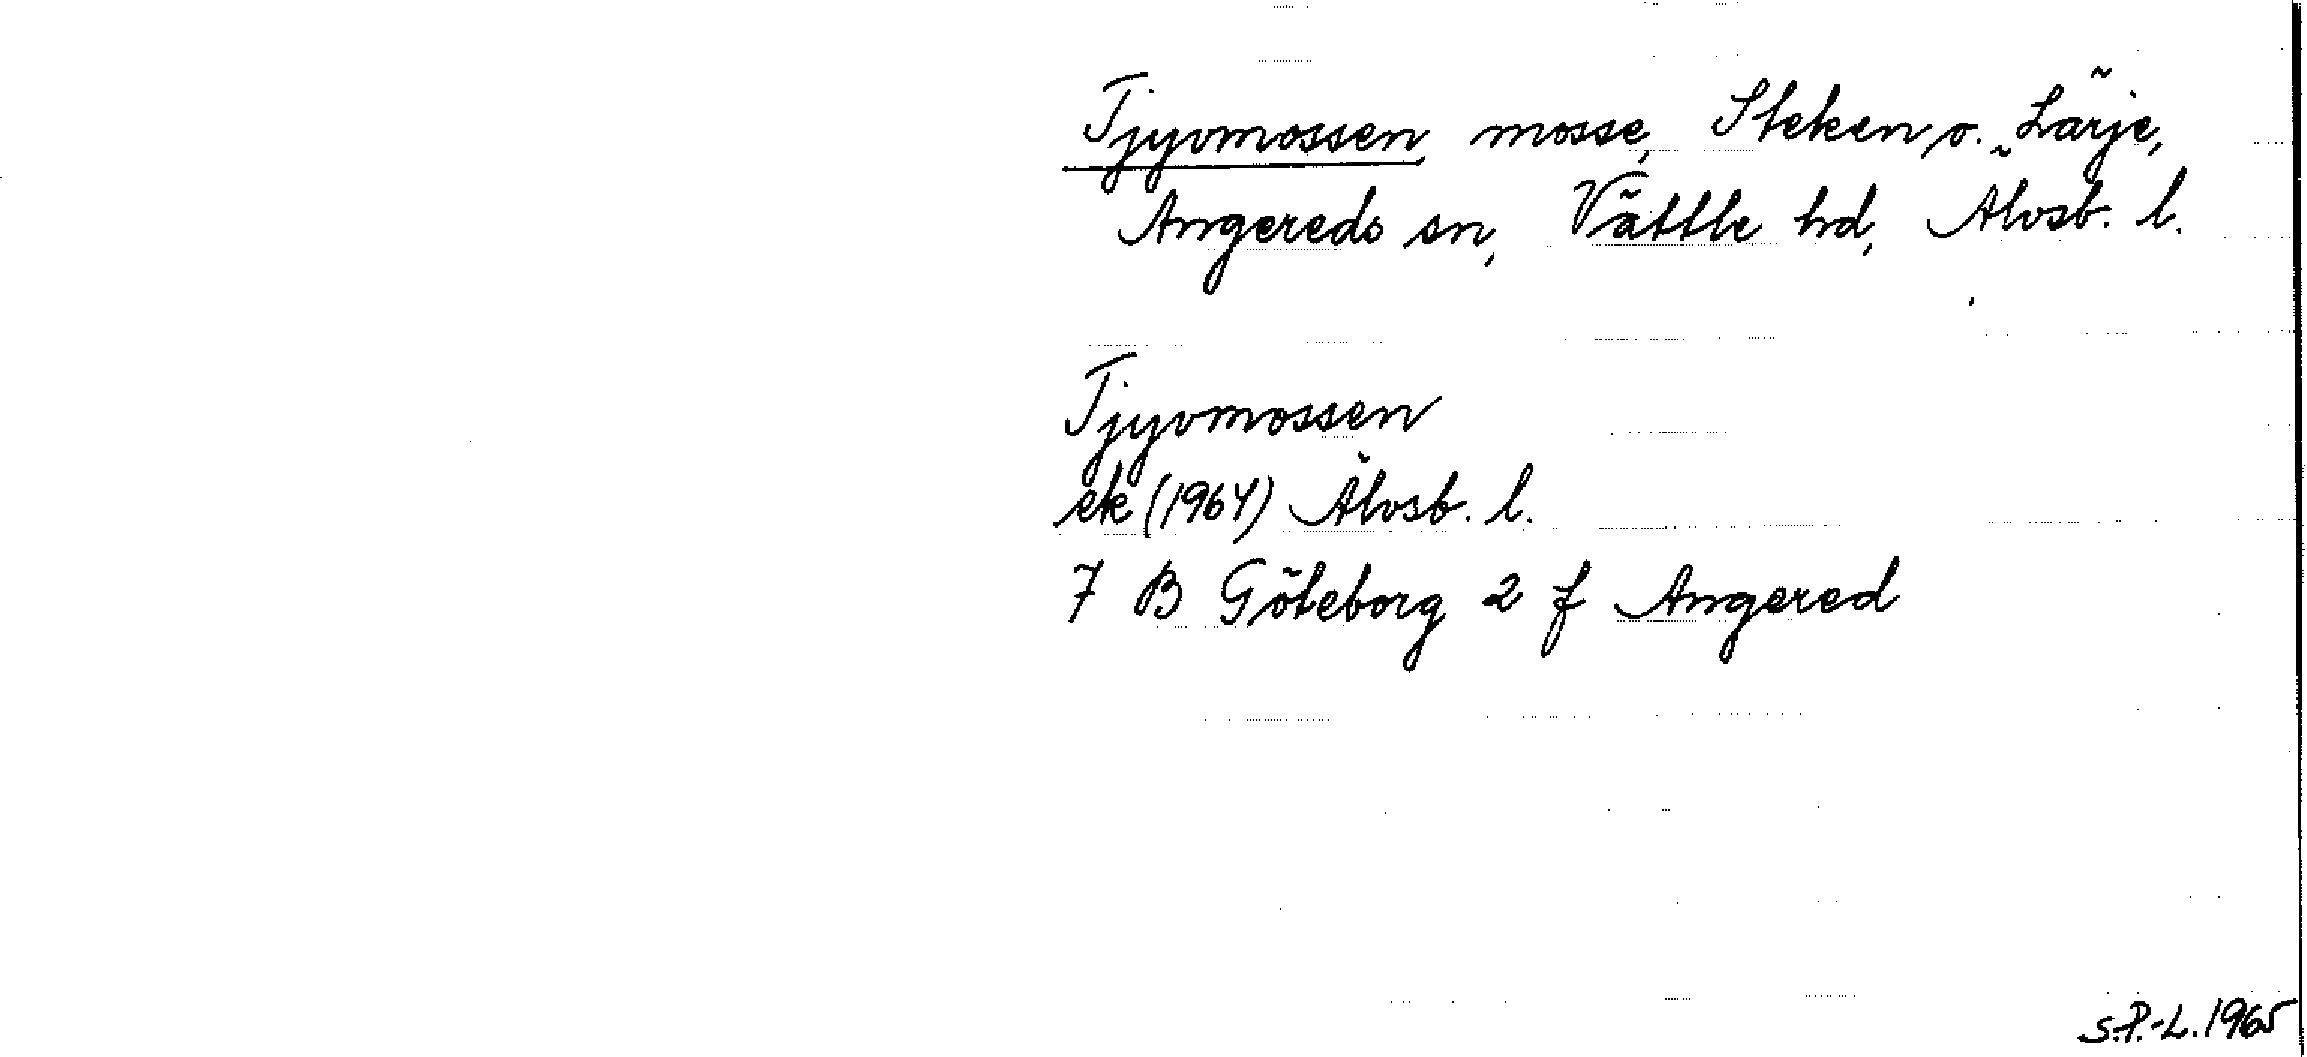 Tjyvmossen mosse, Steken o. Lärje,
Angereds sn, Vättle hd, Älvsb. l.
Tjyvmossen
ek (1964) Älvsb. l.
7 B Göteborg 2 f Angered
S.P.-L. 1965